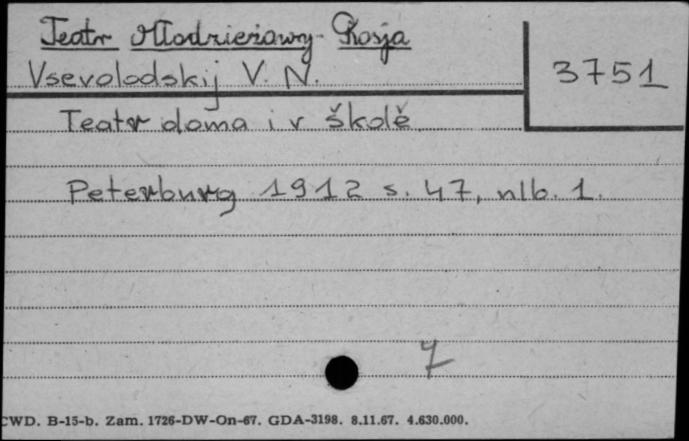 Teatr Młodzieżowy - Rosja
Vsevolodskij V. N.
3751
Teatr doma i v škole
Peterburg 1912 s. 47, nlb. 1.
7
CWD. B-15-b. Zam. 1726-DW-On-67. GDA-3198. 8.11.67. 4.630.000.